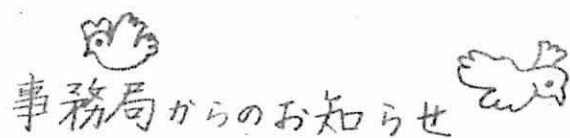 事務局からのお知らせ